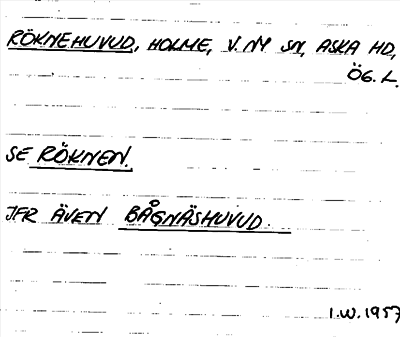 RÖKNEHUVUD, HOLME, V. NY SN, ASKA HD,
ÖG. L.
SE RÖKNEN.
JFR ÄVEN BÅGNÄSHUVUD.
I.W. 1957